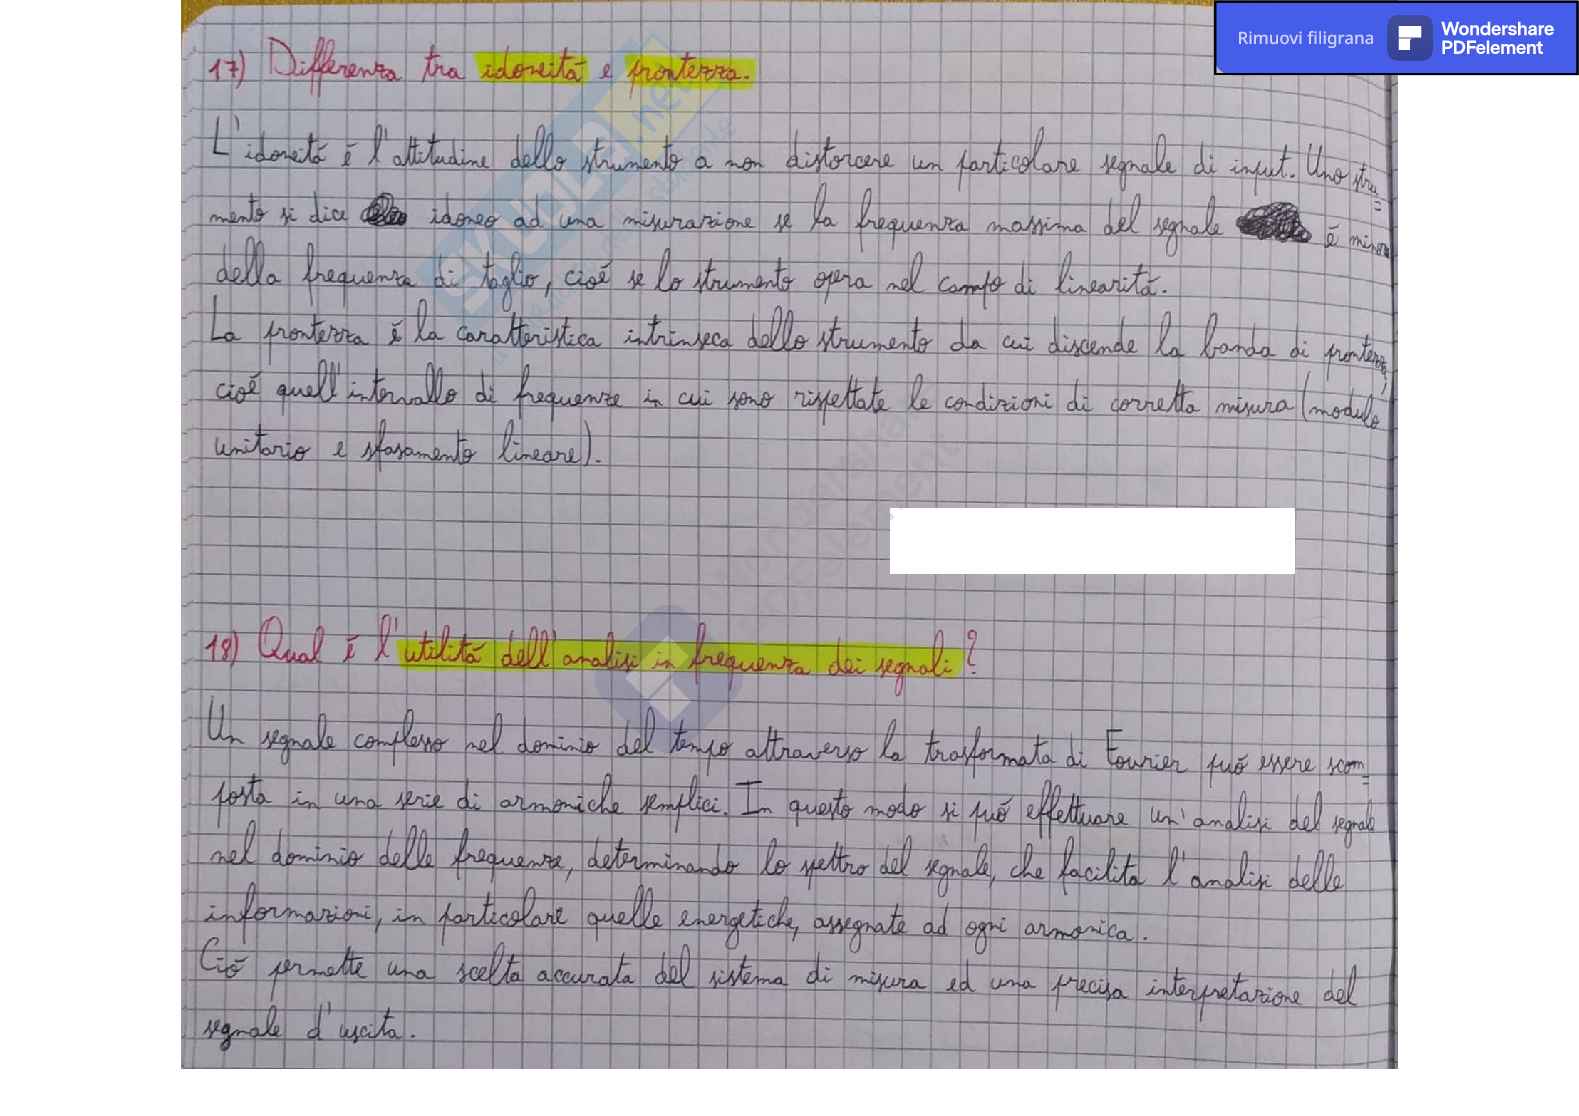 Rimuovi filigrana
Wondershare
PDFelement
17) Differenza tra idoneità e prontezza.
L'idoneità è l'attitudine dello strumento a non distorcere un particolare segnale di input. Uno stru=
mento si dice idoneo ad una misurazione se la frequenza massima del segnale è minore
della frequenza di taglio, cioè se lo strumento opera nel campo di linearità.
La prontezza è la caratteristica intrinseca dello strumento da cui discende la banda di prontezza,
cioè quell'intervallo di frequenze in cui sono rispettate le condizioni di corretta misura (modulo
unitario e sfasamento lineare).
18) Qual è l'utilità dell'analisi in frequenza dei segnali?
Un segnale complesso nel dominio del tempo attraverso la trasformata di Fourier può essere scom=
posta in una serie di armoniche semplici. In questo modo si può effettuare un'analisi del segnale
nel dominio delle frequenze, determinando lo spettro del segnale, che facilita l'analisi delle
informazioni, in particolare quelle energetiche, assegnate ad ogni armonica.
Ciò permette una scelta accurata del sistema di misura ed una precisa interpretazione del
segnale d'uscita.